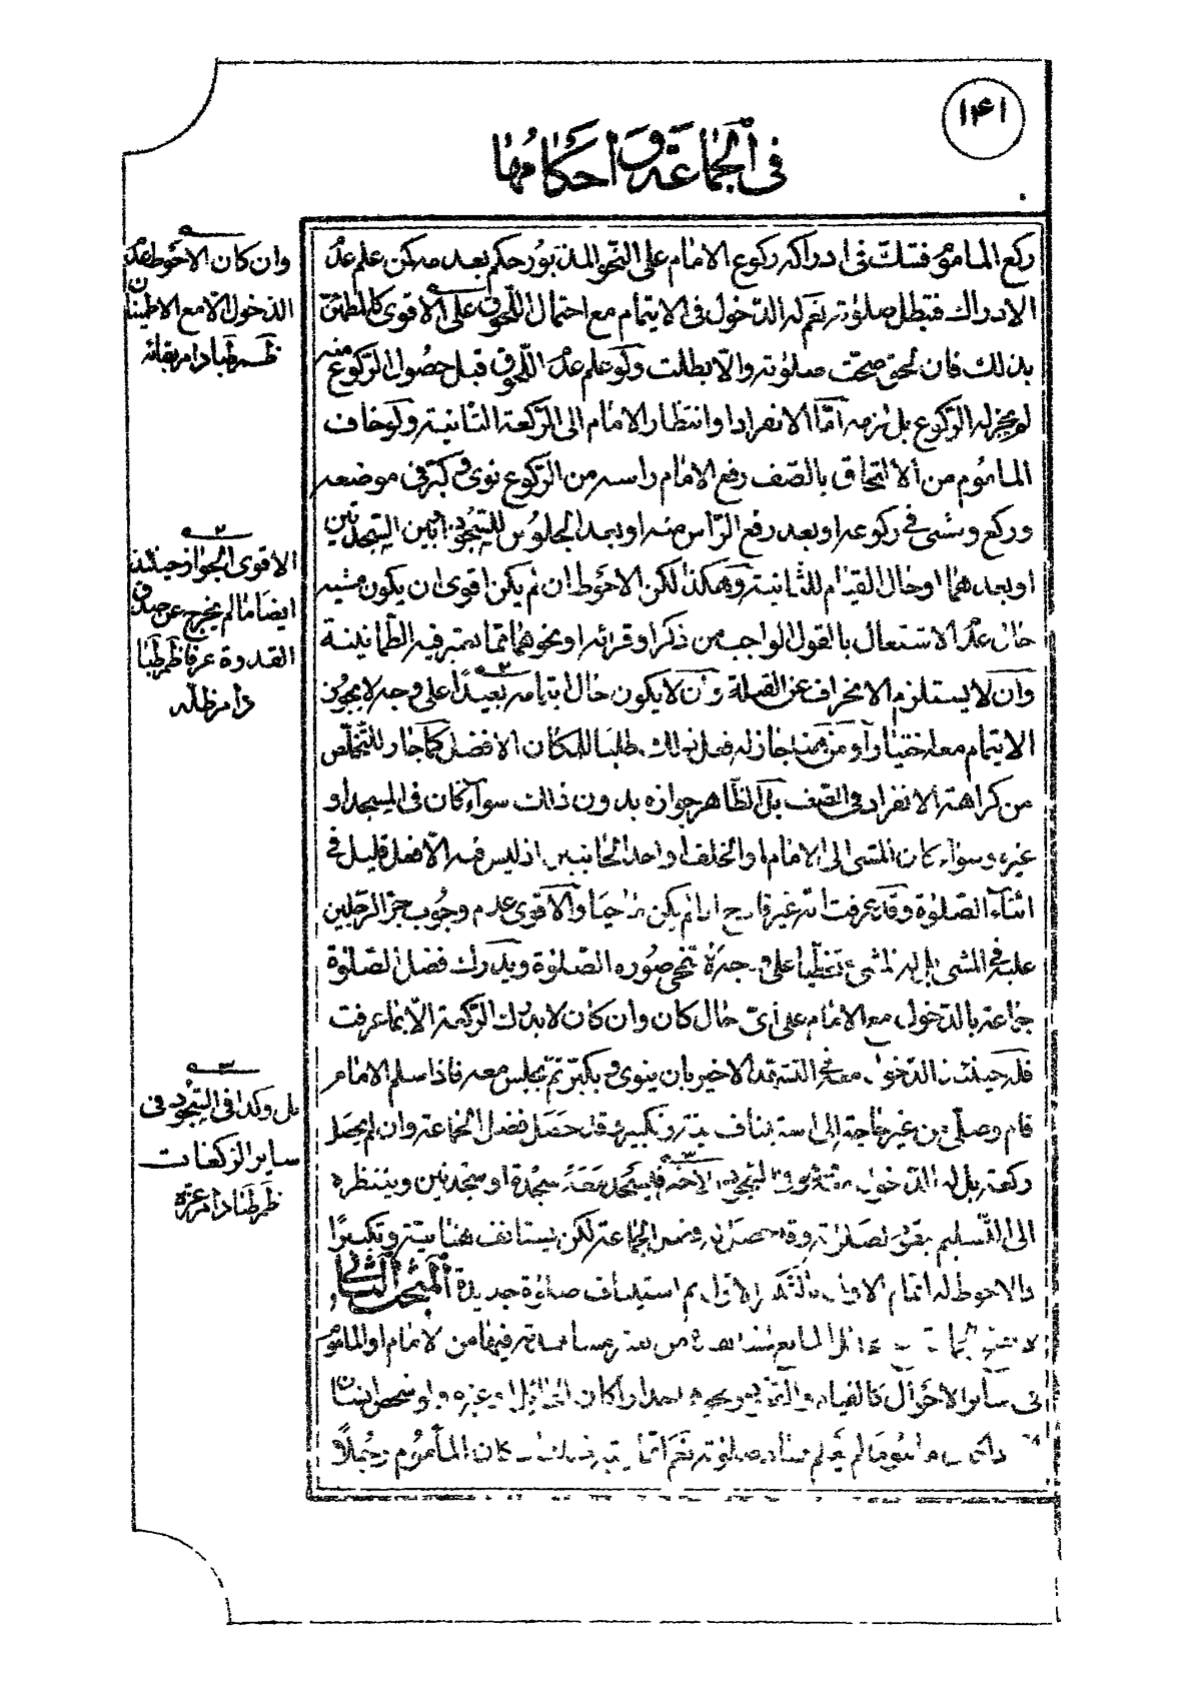 ١٤١
في الجماعة و احكامها
ركع الماموم فشك في ادراكه ركوع الامام على النحو المذبور حكم بعدمه كمن علم عدم
الادراك فتبطل صلوته نعم له الدخول في الايتمام مع احتمال اللحوق على الاقوى كالمطمئن
بذلك فان لحق صحت صلوته والا بطلت ولو علم عدم اللحوق قبل حصول الركوع منه
لم يجز له الركوع بل لزمه اما الانفراد او انتظار الامام الى الركعة الثانية ولو خاف
الماموم من الالتحاق بالصف رفع الامام راسه من الركوع نوى وكبر في موضعه
وركع ومشى في ركوعه او بعد رفع الراس منه او بعد الجلوس للسجود او بين السجدتين
او بعدهما او حال القيام للثانية وهكذا لكن الاحوط ان لم يكن اقوى ان يكون مشيه
حال عدم الاشتعال بالقول الواجب من ذكر او قرائة او نحوهما مما يعتبر فيه الطمانينة
وان لا يستلزم الانحراف عن القبلة وان لا يكون حال ايتمامه بعيدا على وجه لا يجوز
الايتمام معه اختيارا ومن هنا جاز له فعل ذلك طلبا للمكان الافضل كما جاز للتخلص
من كراهة الانفراد في الصف بل الظاهر جوازه بدون ذلك سواء كان في المسجد او
غيره وسواء كان المشى الى الامام او الخلف او احد الجانبين اذ ليس فيه الا فعل قليل في
اثناء الصلوة وقد عرفت انه غير قادح اذا لم يكن ماحيا والاقوى عدم وجوب جر الرجلين
عليه في المشى بل له المشى تخطيا على وجه لا تنمحى صورة الصلوة ويدرك فضل الصلوة
جماعة بالدخول مع الامام على اى حال كان وان كان لا يدرك الركعة الا بما عرفت
فله حينئذ الدخول معه في التشهد الاخير بان ينوى ويكبر ثم يجلس معه فاذا سلم الامام
قام وصلى من غير حاجة الى استيناف نية وتكبيرة قد حصل فضل الجماعة وان لم يحصل
ركعة بل له الدخول معه في السجود الاخير فيسجد معه سجدة او سجدتين وينتظره
الى التسليم لكن يستانف هنا نية وتكبيرا
والاحوط له اتمام الاولى ثم استيناف صلوة جديدة المبحث الثاني
من الامام او الماموم
في سائر الاحوال كالقيام
ما لم يعلم صلوته نعم كان الماموم رجلا
وان كان الاحوط عدم
الدخول الا مع الاطمينان
ظم طبا دام بقائه
٢
الاقوى الجواز حينئذ
ايضا ما لم يخرج عن صدق
القدوة عرفا ظم طبا
دام ظله
٣
بل وكذا في السجود في
ساير الركعات
ظم طبا دام عزه